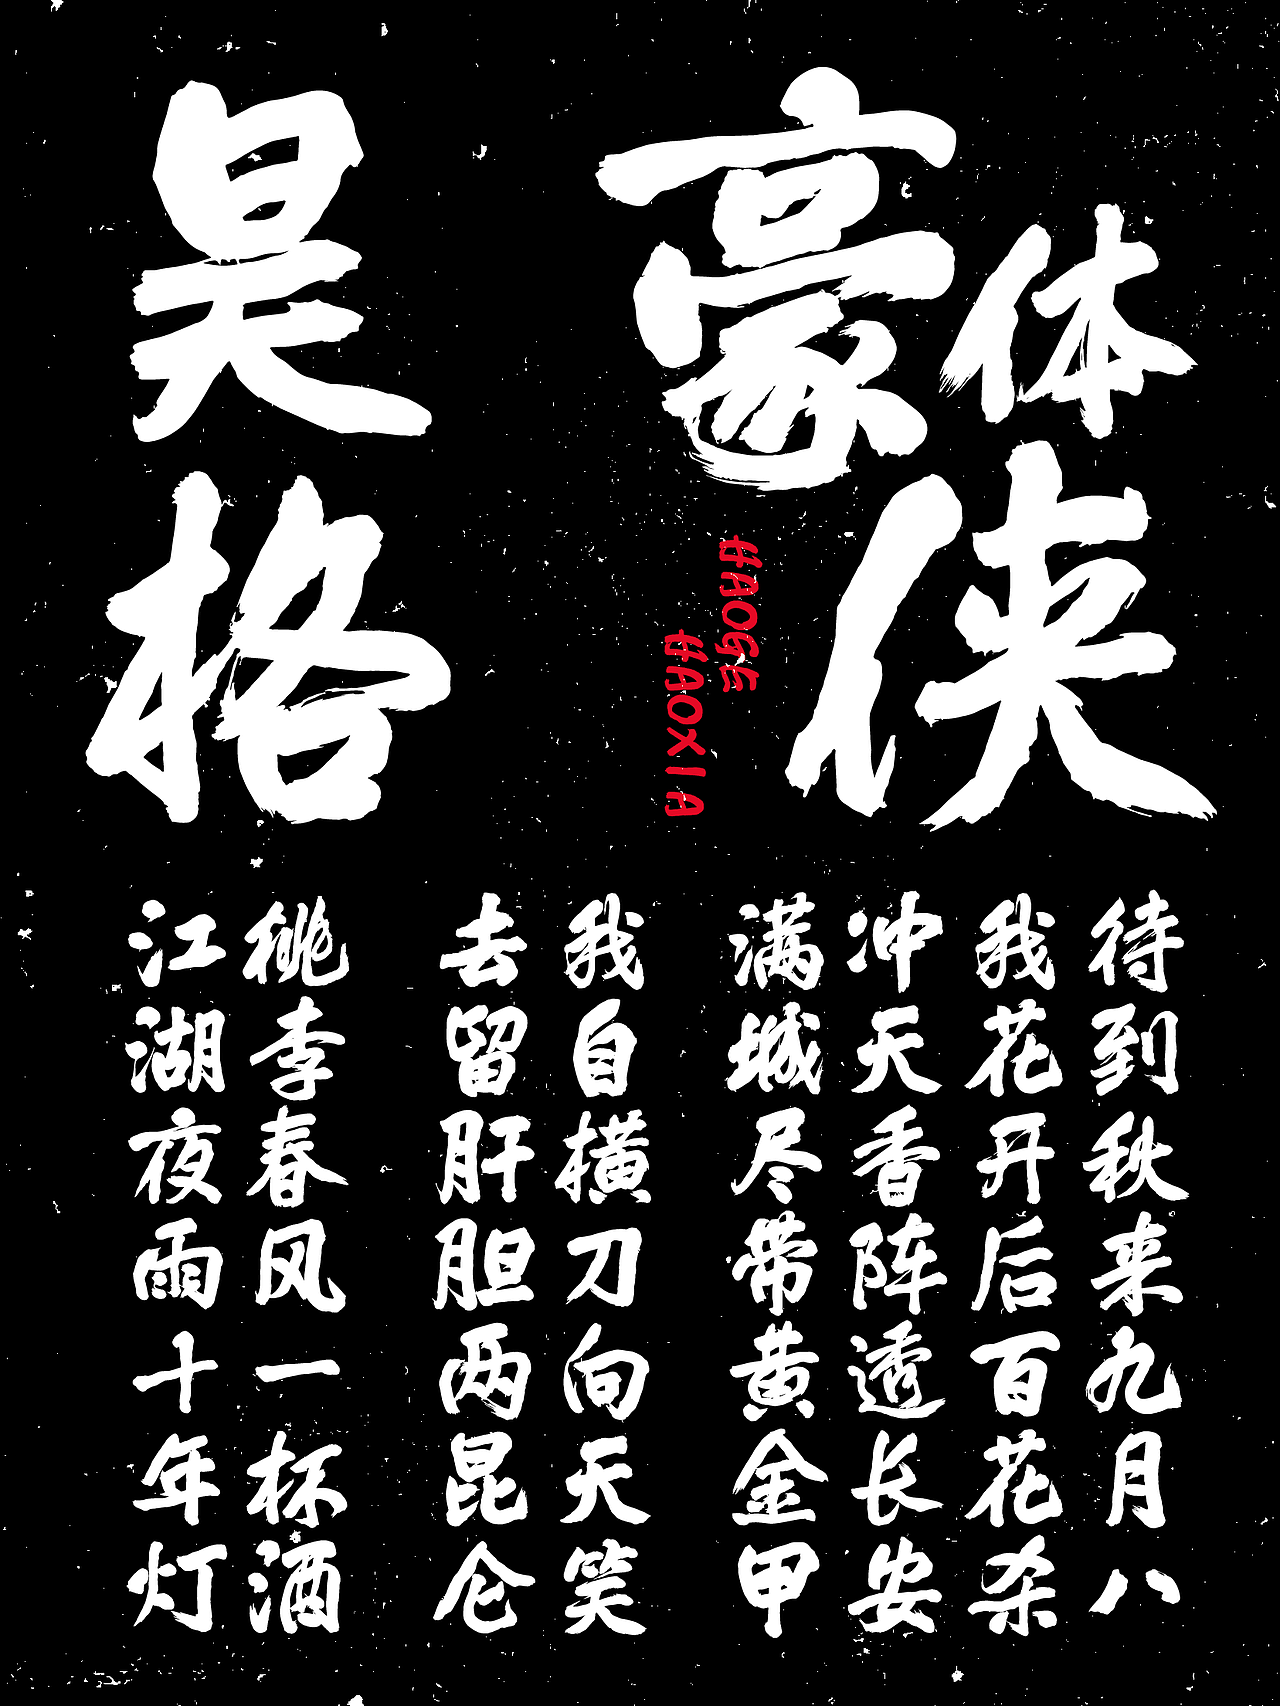 昊格
豪侠
体
HAOGE
HAOXIA
待到秋来九月八
我花开后百花杀
冲天香阵透长安
满城尽带黄金甲
我自横刀向天笑
去留肝胆两昆仑
桃李春风一杯酒
江湖夜雨十年灯